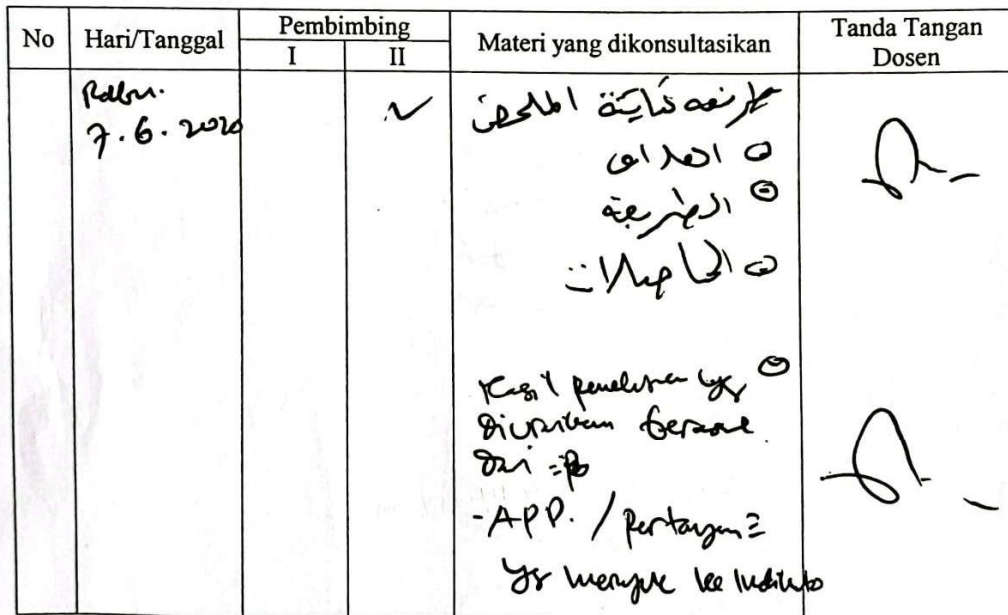 No Hari/Tanggal Pembimbing Materi yang dikonsultasikan Tanda Tangan Dosen
I II
Rabu.
7.6.2020
كتابة الملخص
الطريقة
الحاصلات
Hasil penelitian yg
diuraikan berasal
dari
-APP. / pertanyaan
yg merujuk ke indikator